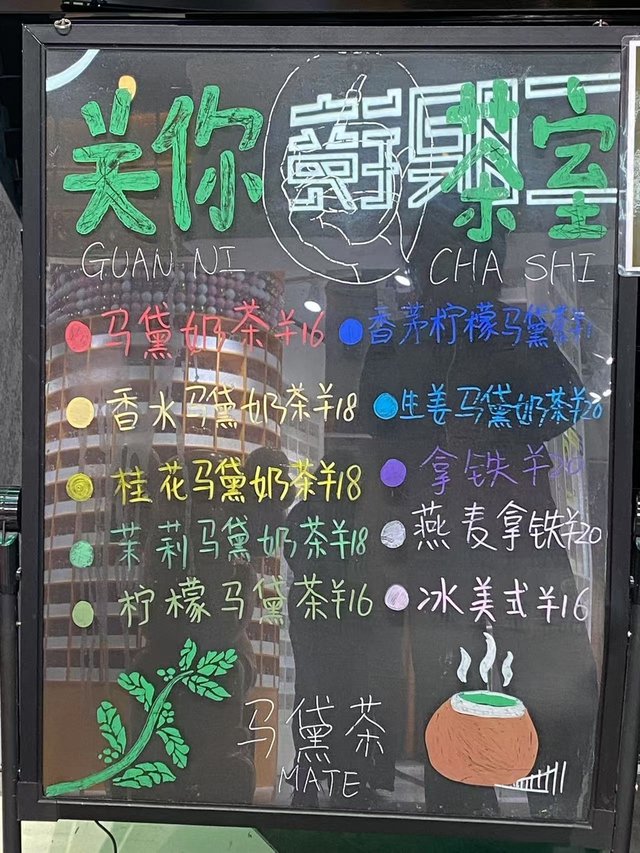 关你 茶室
GUAN NI CHA SHI
马黛奶茶¥16
香水马黛奶茶¥18
桂花马黛奶茶¥18
茉莉马黛奶茶¥18
柠檬马黛茶¥16
香茅柠檬马黛茶
生姜马黛奶茶¥20
拿铁¥20
燕麦拿铁¥20
冰美式¥16
马黛茶
MATE